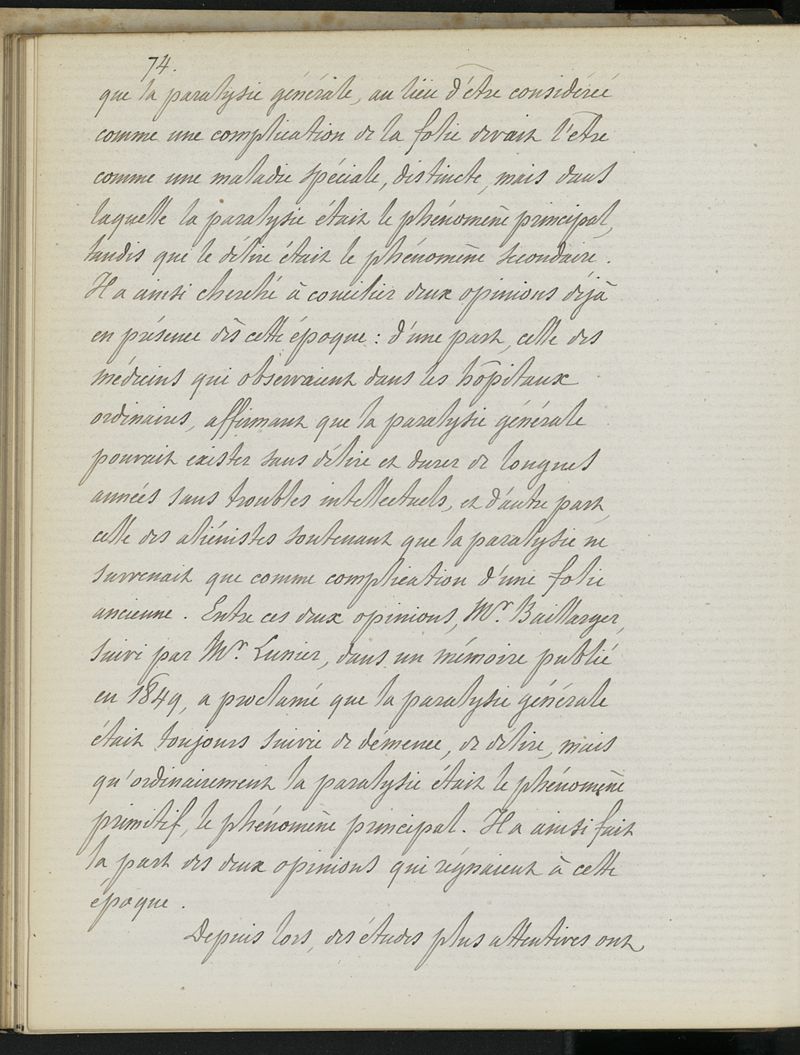 74.
que la paralysie générale, au lieu d'être considérée
comme une complication de la folie devait l'être
comme une maladie spéciale, distincte, mais dans
laquelle la paralysie était le phénomène principal,
tandis que le délire était le phénomène secondaire.
Il a ainsi cherché à concilier deux opinions déjà
en présence dès cette époque : d'une part, celle des
médecins qui observaient dans les hôpitaux
ordinaires, affirmant que la paralysie générale
pouvait exister sans délire et durer de longues
années sans troubles intellectuels, et d'autre part,
celle des aliénistes soutenant que la paralysie ne
survenait que comme complication d'une folie
ancienne. Entre ces deux opinions, Mr. Baillarger,
suivi par Mr. Lunier, dans un mémoire publié
en 1849, a proclamé que la paralysie générale
était toujours suivie de démence, de délire, mais
qu'ordinairement la paralysie était le phénomène
primitif, le phénomène principal. Il a ainsi fait
la part des deux opinions qui régnaient à cette
époque.
Depuis lors, des études plus attentives ont